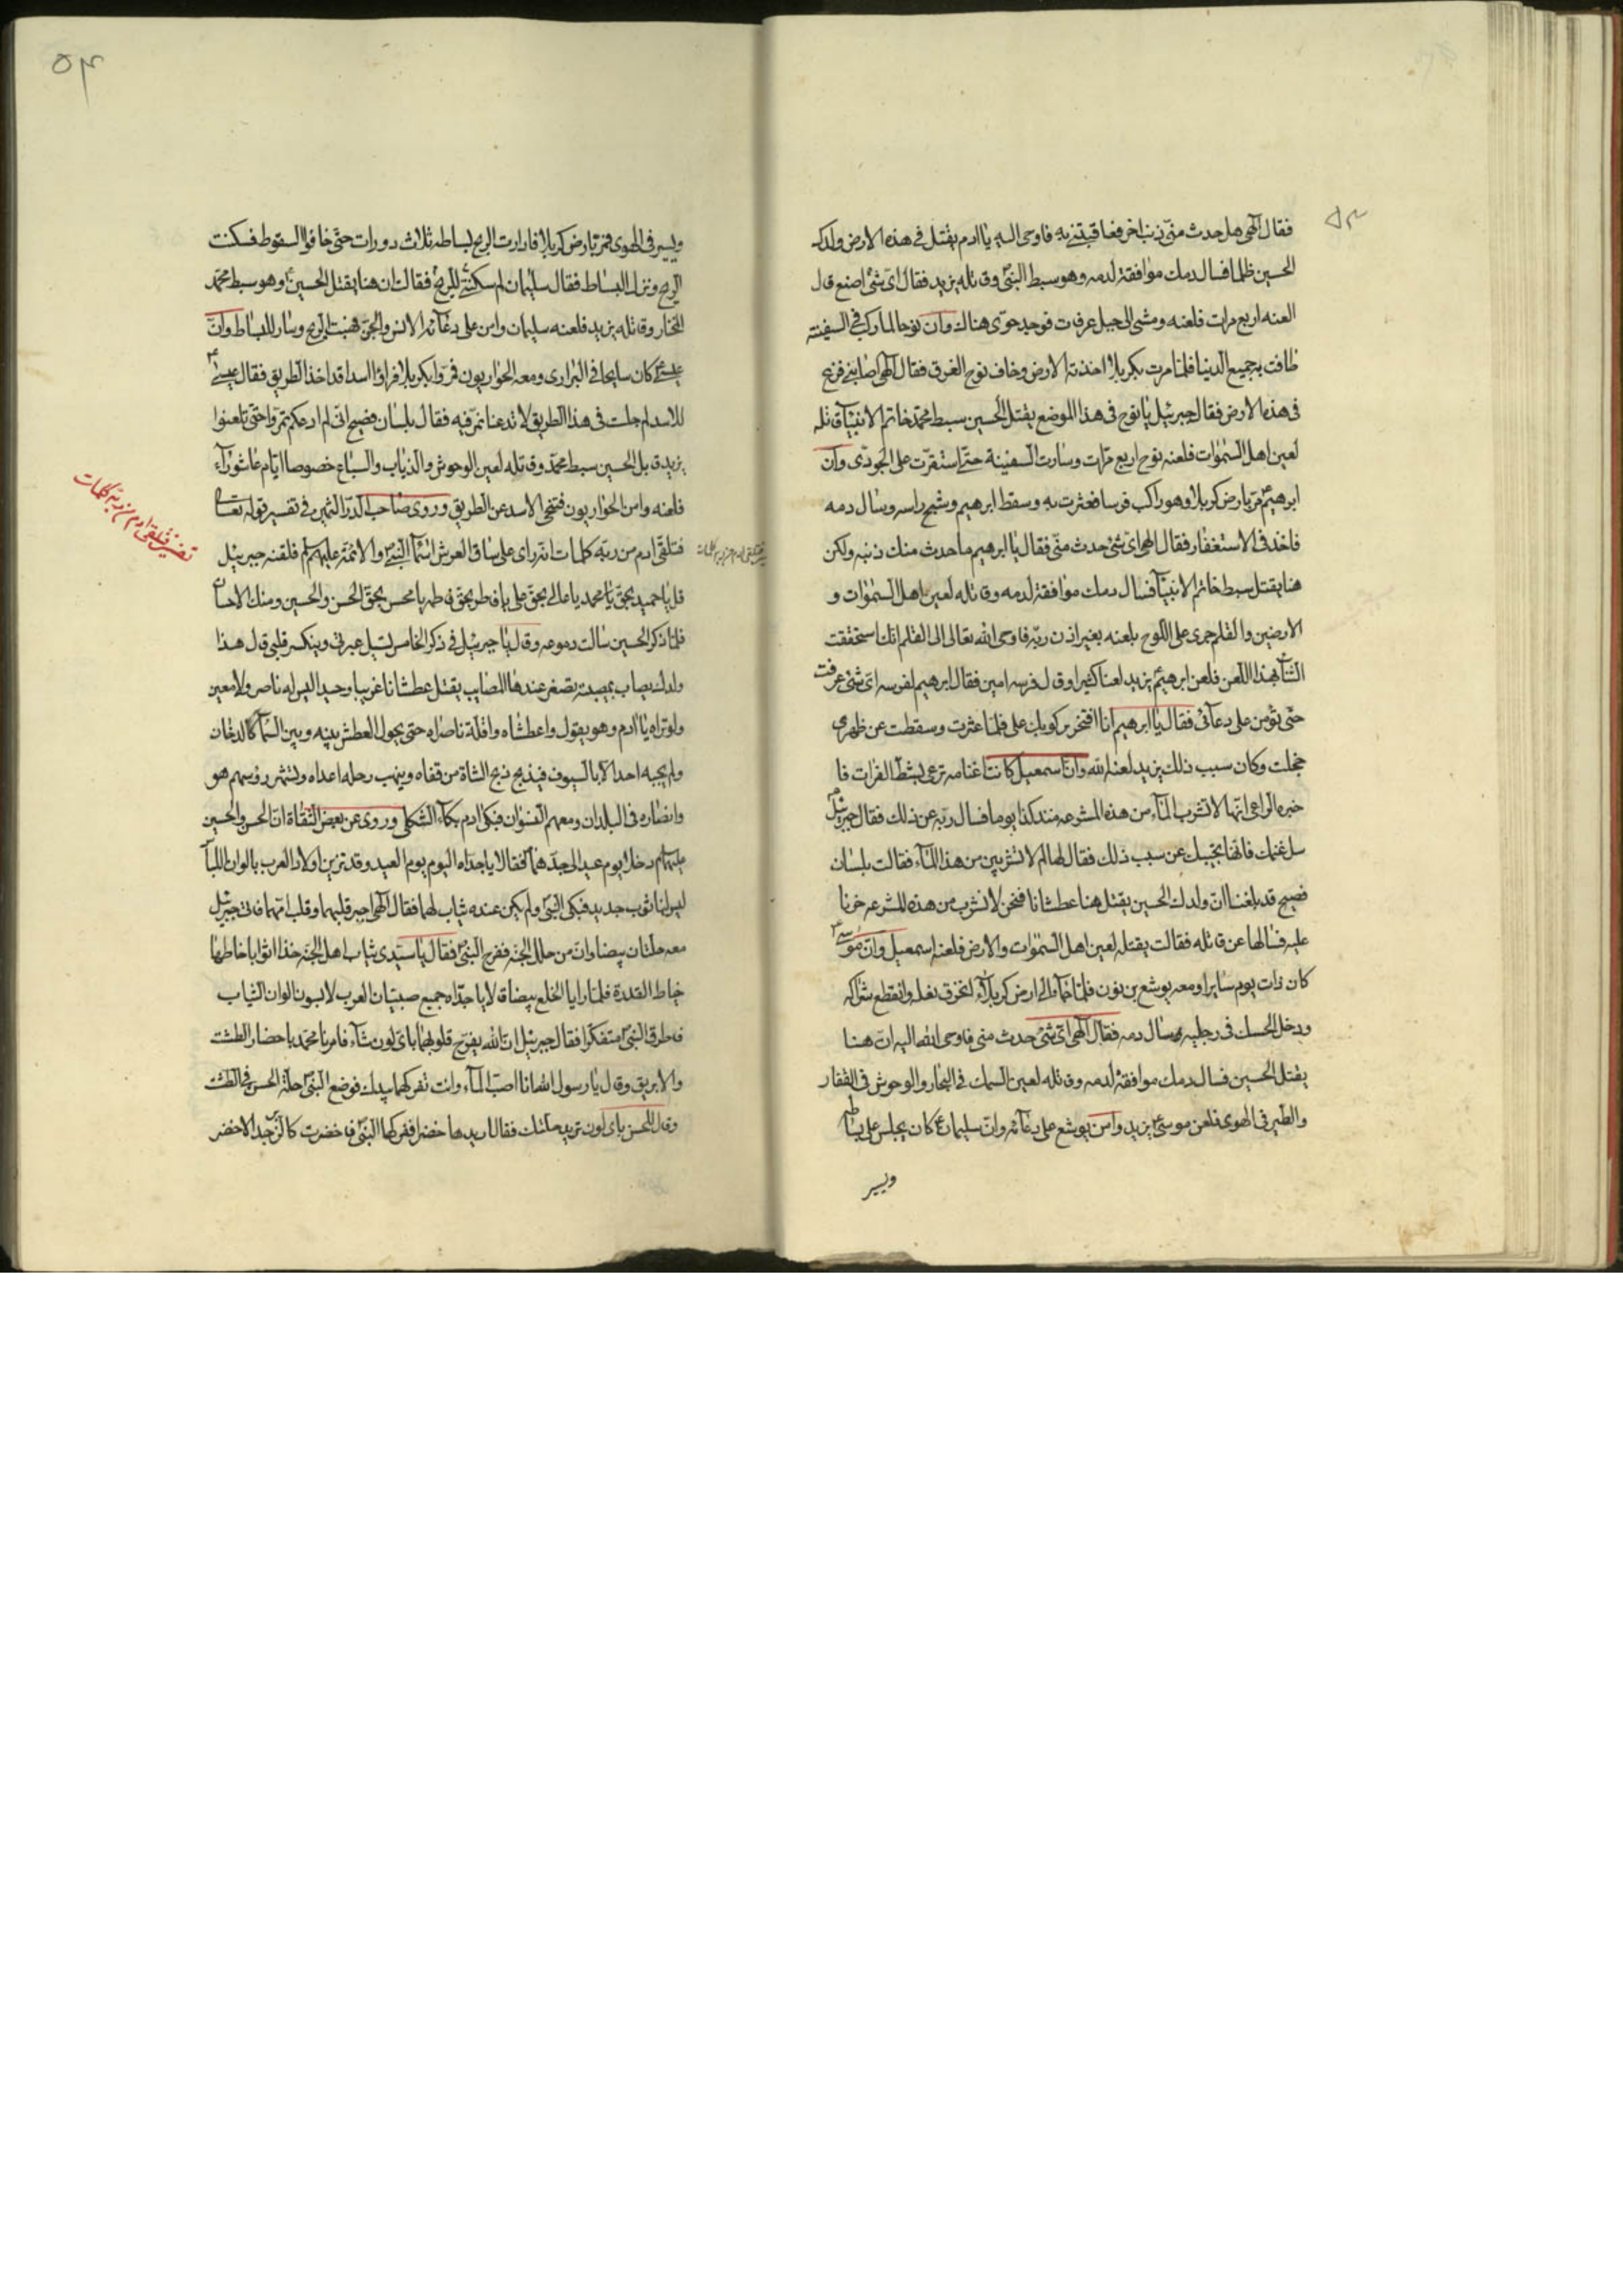 ٥٣
فقال الهى هل حدث منّى ذنب اخر فعاقبتنى به فاوحى اليه يا ادم يقتل فى هذه الارض ولدك
الحسين ظلما فسال دمك موافقة لدمه وهو سبط النبىّ وقاتله يزيد فقال اىّ شئ اصنع قال
العنه اربع مرات فلعنه ومشى الى جبل عرفات فوجد حوّى هناك وانّ نوحا لما ركب فى السفينة
طافت به جميع الدنيا فلمّا مرت بكربلا اخذته الارض وخاف نوح الغرق فقال الهى اصابنى فزع
فى هذه الارض فقال جبرئيل يا نوح فى هذا الموضع يقتل الحسين سبط محمّد خاتم الانبيآء قاتله
لعين اهل السموات فلعنه نوح اربع مرّات وسارت السفينة حتّى استقرّت على الجودى وانّ
ابرهيمؑ مرّ بارض كربلا وهو راكب فرسا فعثرت به وسقط ابرهيم وشج راسه وسال دمه
فاخذ فى الاستغفار فقال الهى اىّ شئ حدث منّى فقال يا ابرهيم ما حدث منك ذنب ولكن
هنا يقتل سبط خاتم الانبيآ فسال دمك موافقة لدمه وقاتله لعين اهل السموات و
الارضين والقلم جرى على اللوح بلعنه بغير اذن ربّه فاوحى الله تعالى الى القلم انك استحققت
الثنآء بهذا اللعن فلعن ابرهيمؑ يزيد لعنا كثيرا وقال فرسه امين فقال ابرهيم لفرسه اى شئ عرفت
حتّى تؤمن على دعآئى فقال يا ابرهيم انا افتخر بركوبك على فلمّا عثرت وسقطت عن ظهرى
خجلت وكان سبب ذلك يزيد لعنه الله وانّ اسمعيل كانت اغنامه ترعى بشطّ الفرات فا
خبره الراعى انّها لا تشرب المآء من هذه المشرعه منذ كذا يوما فسال ربّه عن ذلك فقال جبرئيل
سل غنمك فانّها تجيبك عن سبب ذلك فقال لها لم لا تشربين من هذا المآء فقالت بلسان
فصيح قد بلغنا انّ ولدك الحسين يقتل هنا عطشانا فنحن لا نشرب من هذه المشرعه حزنا
عليه فسالها عن قاتله فقالت يقتله لعين اهل السموات والارض فلعنه اسمعيل وانّ موسىؑ
كان ذات يوم سايرا ومعه يوشع بن نون فلمّا جآء الى ارض كربلآء انخرق نعله وانقطع شراكه
ودخل الحسك فى رجليه وسال دمه فقال الهى اىّ شئ حدث منى فاوحى الله اليه انّ هنا
يقتل الحسين فسال دمك موافقة لدمه وقاتله لعين السمك فى البحار والوحوش فى القفار
والطير فى الهوى فلعن موسىؑ يزيد وامن يوشع على دعآئه وانّ سليمانؑ كان يجلس على بساطه
ويسير
٥٤
ويسير فى الهوى فمرّ بارض كربلا فادارت الريح بساطه ثلاث دورات حتّى خافوا السقوط فسكنت
الريح ونزل البساط فقال سليمان لم سكنتى للريح فقالت ان هنا يقتل الحسينؑ وهو سبط محمّد
المختار وقاتله يزيد فلعنه سليمان وامن على دعآئه الانس والجنّ فهبّت الريح وسار البساط وانّ
عيسىؑ كان سايحا فى البرارى ومعه الحواريون فمرّوا بكربلا فراوا اسدا قد اخذ الطريق فقال عيسىؑ
للاسد لم جلست فى هذا الطريق لا تدعنا نمرّ فيه فقال بلسان فصيح انّى لم ادعكم تمرّوا حتّى تلعنوا
يزيد قاتل الحسين سبط محمّد وقاتله لعين الوحوش والذياب والسباع خصوصا ايّام عاشورآء
فلعنه وامن الحواريون فتنحى الاسد عن الطريق وروى صاحب الدرّ الثمين فى تفسير قوله تعالى
فتلقّى ادم من ربّه كلمات انّه راى على ساق العرش اسمآء النبىّ والائمّة عليهم السلام فلقنه جبرئيل
تفسير فتلقى ادم من ربّه كلمات
تفسير فتلقى ادم من ربه كلمات
قل يا حميد بحقّ يا محمد يا عالى بحقّ على يا فاطر بحقّ فاطمه يا محسن بحقّ الحسن والحسين ومنك الاحسان
فلمّا ذكر الحسين سالت دموعه وقال يا جبرئيل فى ذكر الخامس تسيل عبرتى وينكسر قلبى قال هذا
ولدك يصاب بمصيبة تصغر عندها المصايب يقتل عطشانا غريبا وحيدا ليس له ناصر ولا معين
ولو تراه يا ادم وهو يقول واعطشاه واقلة ناصراه حتى يحول العطش بينه وبين السمآء كالدخان
ولم يجبه احد الا بالسيوف فيذبح ذبح الشاة من قفاه وينهب رحله اعداه وتشهر رؤسهم هو
وانصاره فى البلدان ومعهم النسوان فبكى ادم بكآء الثكلى وروى عن بعض الثقاة انّ الحسن والحسين
عليهما السلام دخلا يوم عيد الى جدّهما فقالا يا جدّاه اليوم يوم العيد وقد تزين اولاد العرب بالوان اللباس
ليس لنا ثوب جديد فبكى النبىّ ولم يكن عنده ثياب لهما فقال الهى اجبر قلبهما وقلب امّهما فاتى جبرئيل
معه حلّتان بيضاوان من حلل الجنّة ففرح النبىّ فقال يا سيّدى ثياب اهل الجنّه خذا اثوابا خاطها
خياط القدرة فلمّا رايا الخلع بيضا قالا يا جدّاه جميع صبيان العرب لابسون الوان الثياب
فاطرق النبىّ متفكّرا فقال جبرئيل انّ الله يفرّح قلوبهما باىّ لون شآء فامر يا محمّد باحضار الطشت
والابريق وقال يا رسول الله انا اصبّ المآء وانت تفركهما بيدك فوضع النبىّ حلّة الحسن فى الطشت
وقال للحسن باىّ لون تريد حلّتك فقال اريدها خضرا ففركها النبىّ فاخضرت كالزبرجد الاخضر